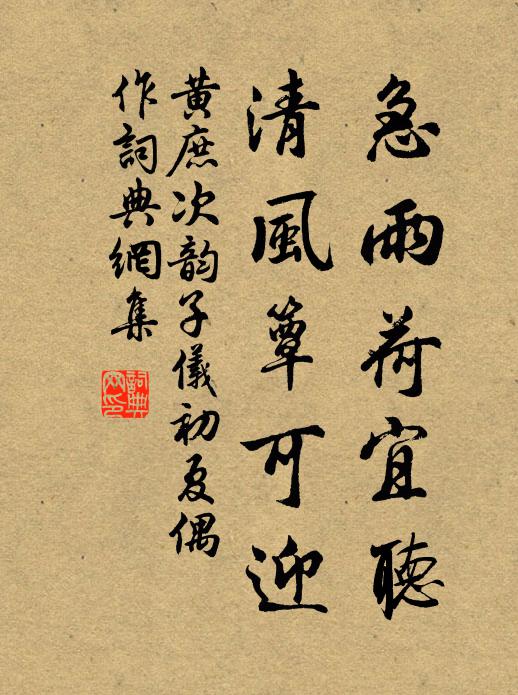 急雨荷宜聽
清風簟可迎
黃庶次韵子儀初夏偶
作詞典網集
詞典網印